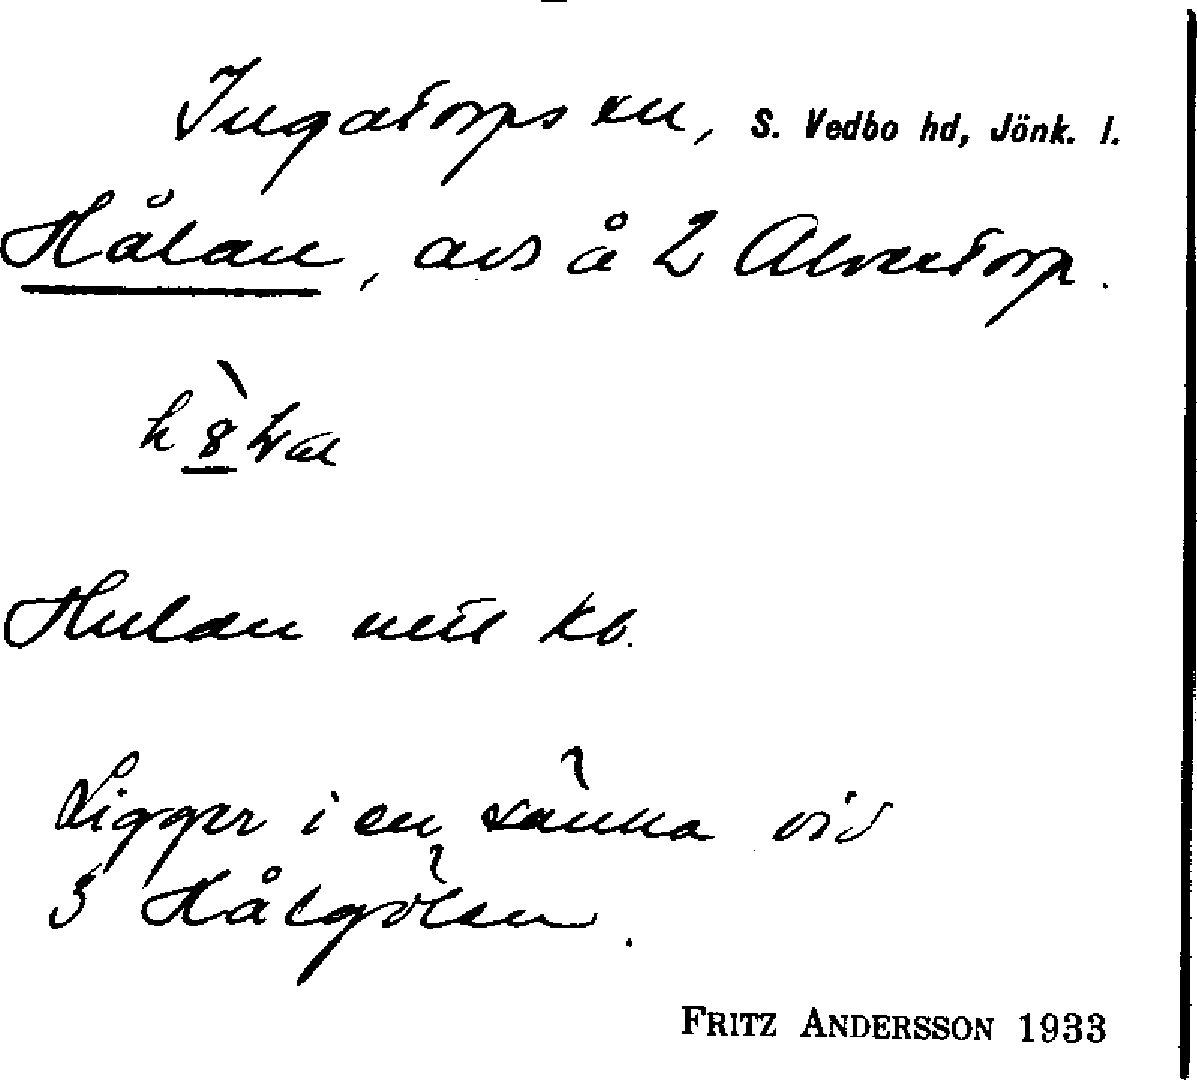 Ingatorps sn, S. Vedbo hd, Jönk. l.
Hålan, avs å 2 Alvestorp.
Hulan utt. kb.
Ligger i en sänka vid
3 Hålgölen.
FRITZ ANDERSSON 1933